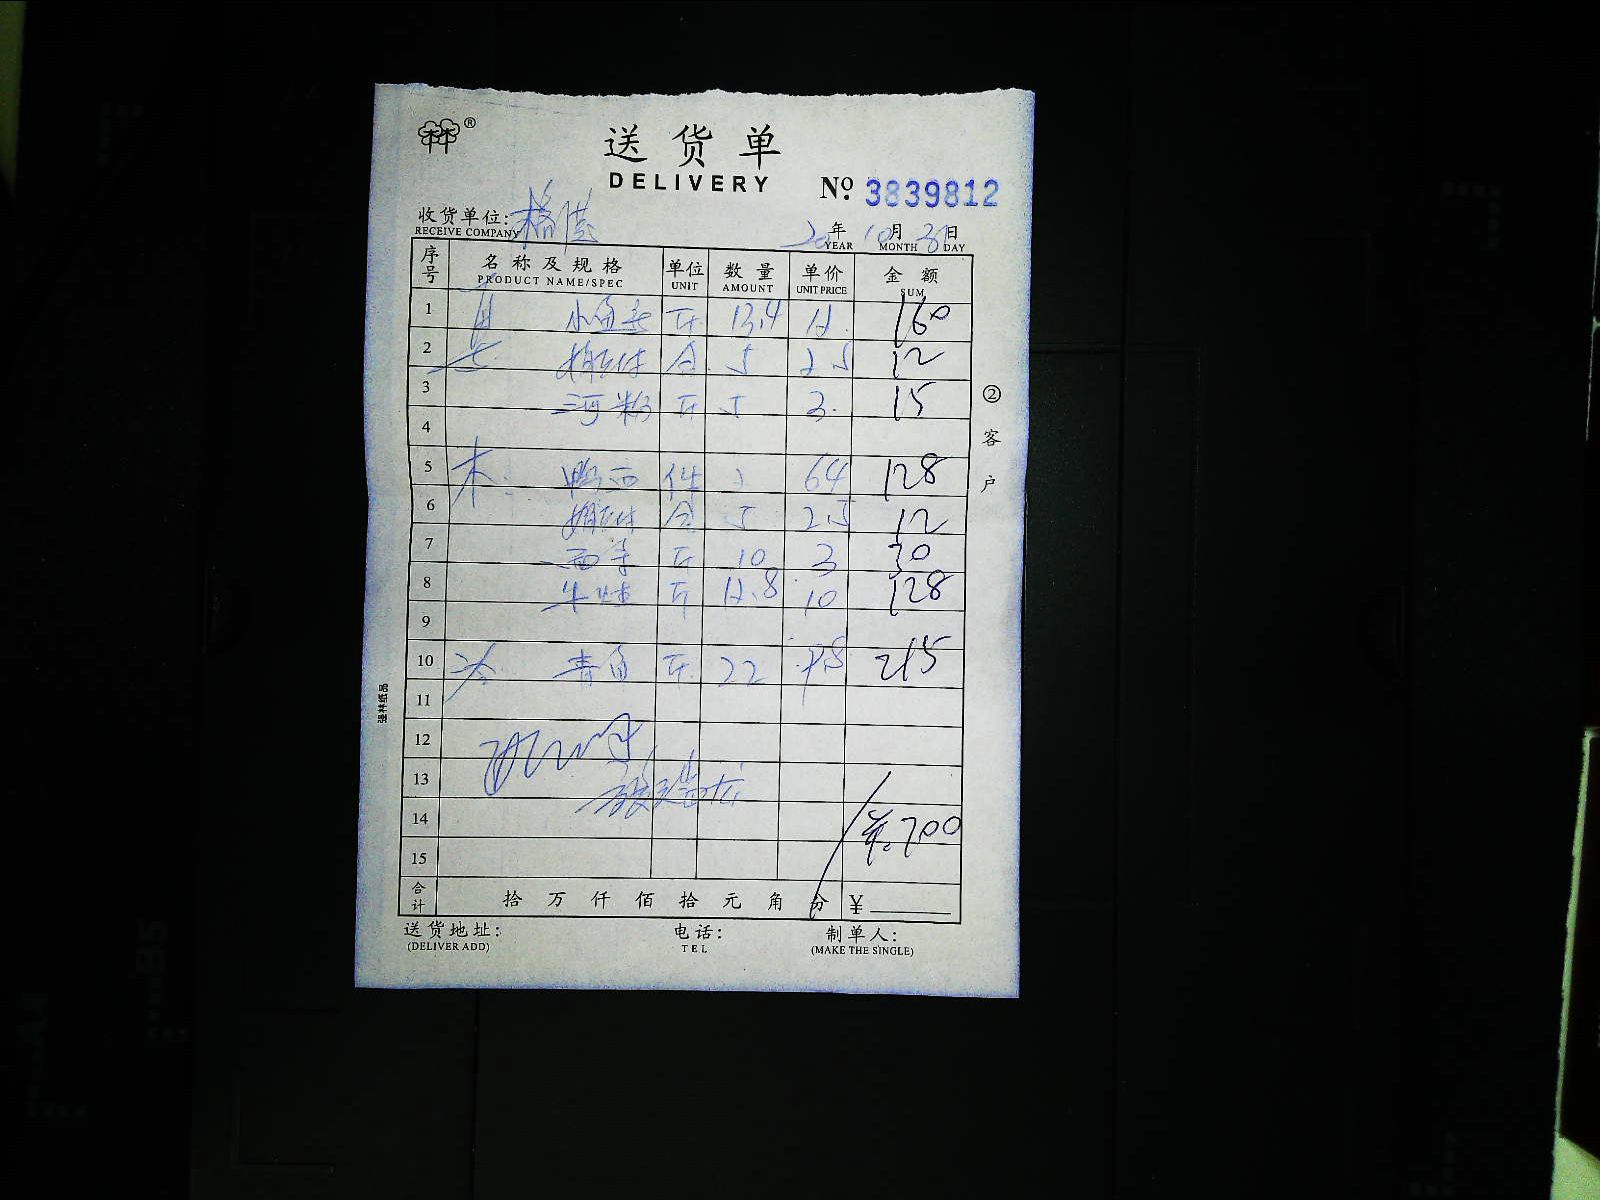 林林®
送货单
DELIVERY
Nº. 3839812
收货单位:
RECEIVE COMPANY
20年 10月 31日
YEAR MONTH DAY
序号 名称及规格 单位 数量 单价 金额
PRODUCT NAME/SPEC UNIT AMOUNT UNIT PRICE SUM
1 斤 13.4 12 160
2 合 5 2.5 12
3 河粉 斤 5 3 15
4
5 木 件 2 64 128
6 合 5 2.5 12
7 西芹 斤 10 3 30
8 斤 12.8 10 128
9
10 青角 斤 22 9.8 215
11
12
13
14 ¥:700
15
合计 拾 万 仟 佰 拾 元 角 分 ¥
送货地址: 电话: 制单人:
(DELIVER ADD) TEL (MAKE THE SINGLE)
②客户
强林纸品